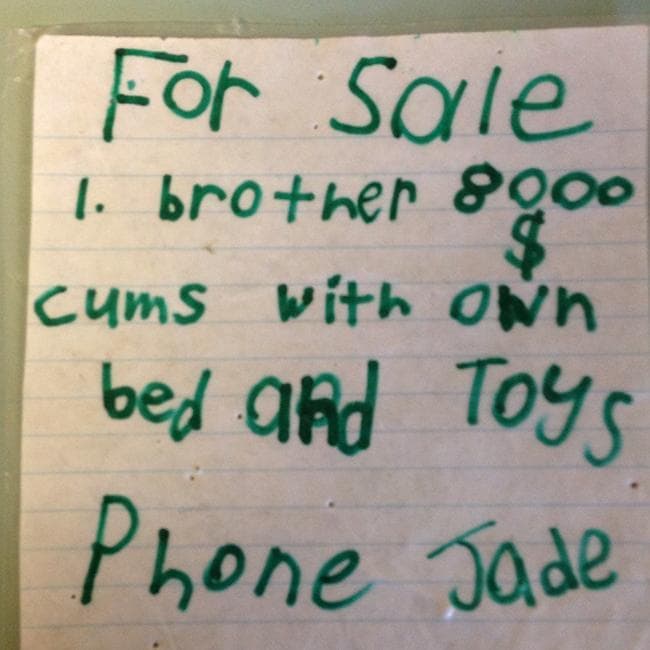 For Sale
1. brother 8000
$
cums with own
bed and Toys
Phone Jade